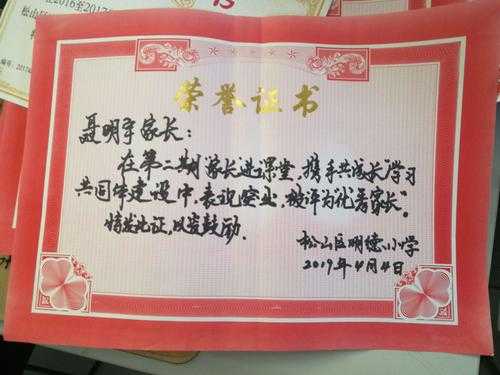 2016至2017
松山
编号:2017
荣誉证书
聂明宇家长:
在第二期“家长进课堂,携手共成长”学习
共同体建设中,表现突出,被评为“优秀家长”.
特发此证,以资鼓励.
松山区明德小学
2019年4月4日